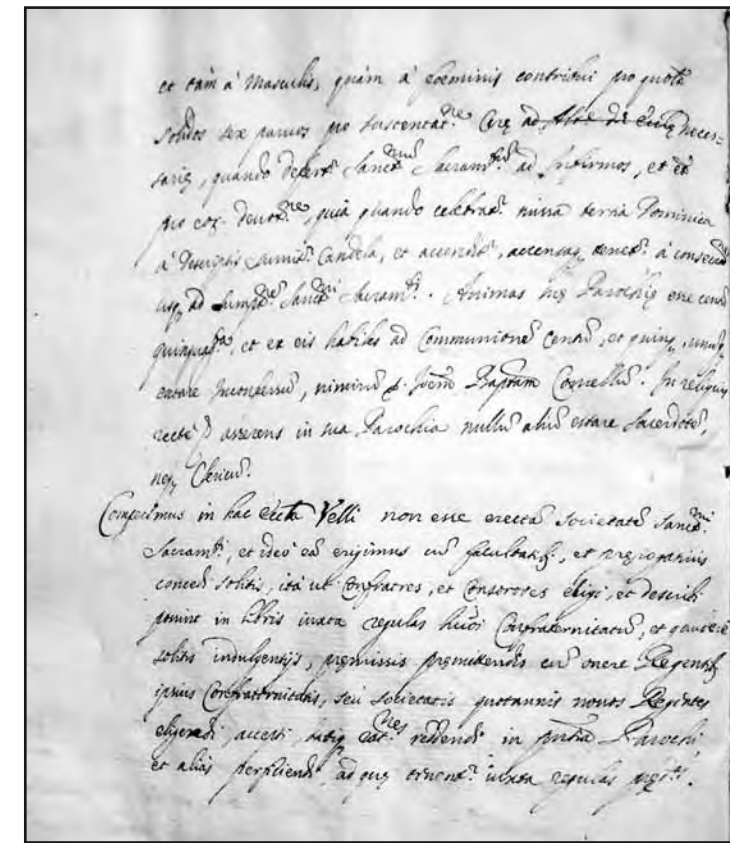 et tàm à Masculis, quàm à foeminis contribui pro quota
solidos sex parvos pro sustentat.ne Cerę neces=
sarię, quando defert.r Sanct.mũ Sacram.tũ ad Infirmos, et
pro eor. devot.ne, quia quando celebrat.r missa tertia Dominica
à descriptis Candela, et accendit.r, accensaq; tenet.r à
usq; ad Sumpt.ne Sanct.mi Sacram.ti. Animas suę Parochię esse
et ex eis habiles ad Communionẽ centũ, et quinq;
extare Inconfessũ, nimirũ Baptam In reliquis
rectè asserens in sua Parochia nullũ aliũ extare Sacerdotẽ,
neq; Clericũ.
Comperimus in hac eccta Velli non esse erectã Societatẽ Sanct.mi
Sacram.ti, et ideò eã erigimus cũ facultatib;, et pręrogativis
concedi solitis, ità ut Confratres, et Consorores eligi, et describi
possint in libris iuxta regulas huiõi Confraternitatũ, et gaudere
solitis indulgentijs, pręmissis pręmittendis cũ onere Regentib;
ipsius Confraternitatis, seù Societatis quotannis novos Regentes
eligendi, accepti, datiq; rat.nes reddendi in pñtia Parochi,
et alias perficiendi, ad quę tenent.r iuxta regulas pręd.tas.